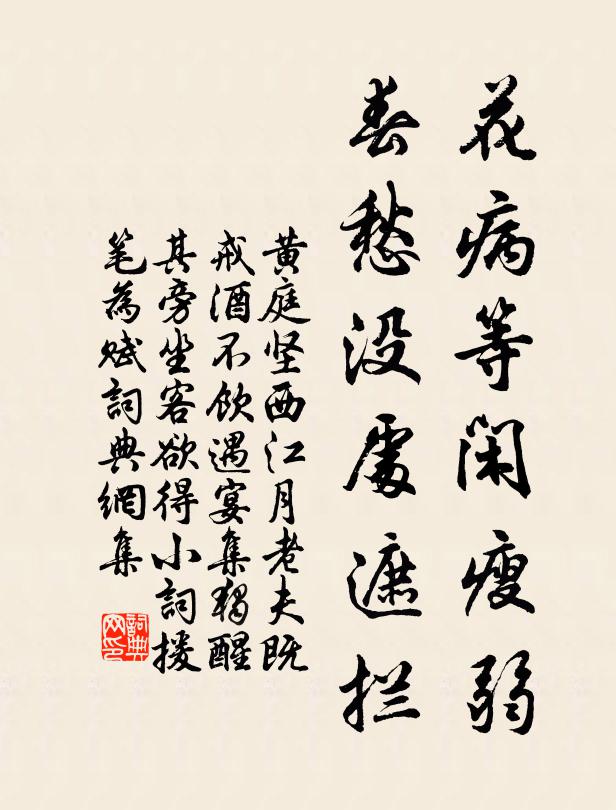 花病等闲瘦弱
春愁没處遮拦
黄庭坚西江月老夫既
戒酒不飲遇宴集獨醒
其旁坐客欲得小詞援
笔為赋詞典網集
詞典網印